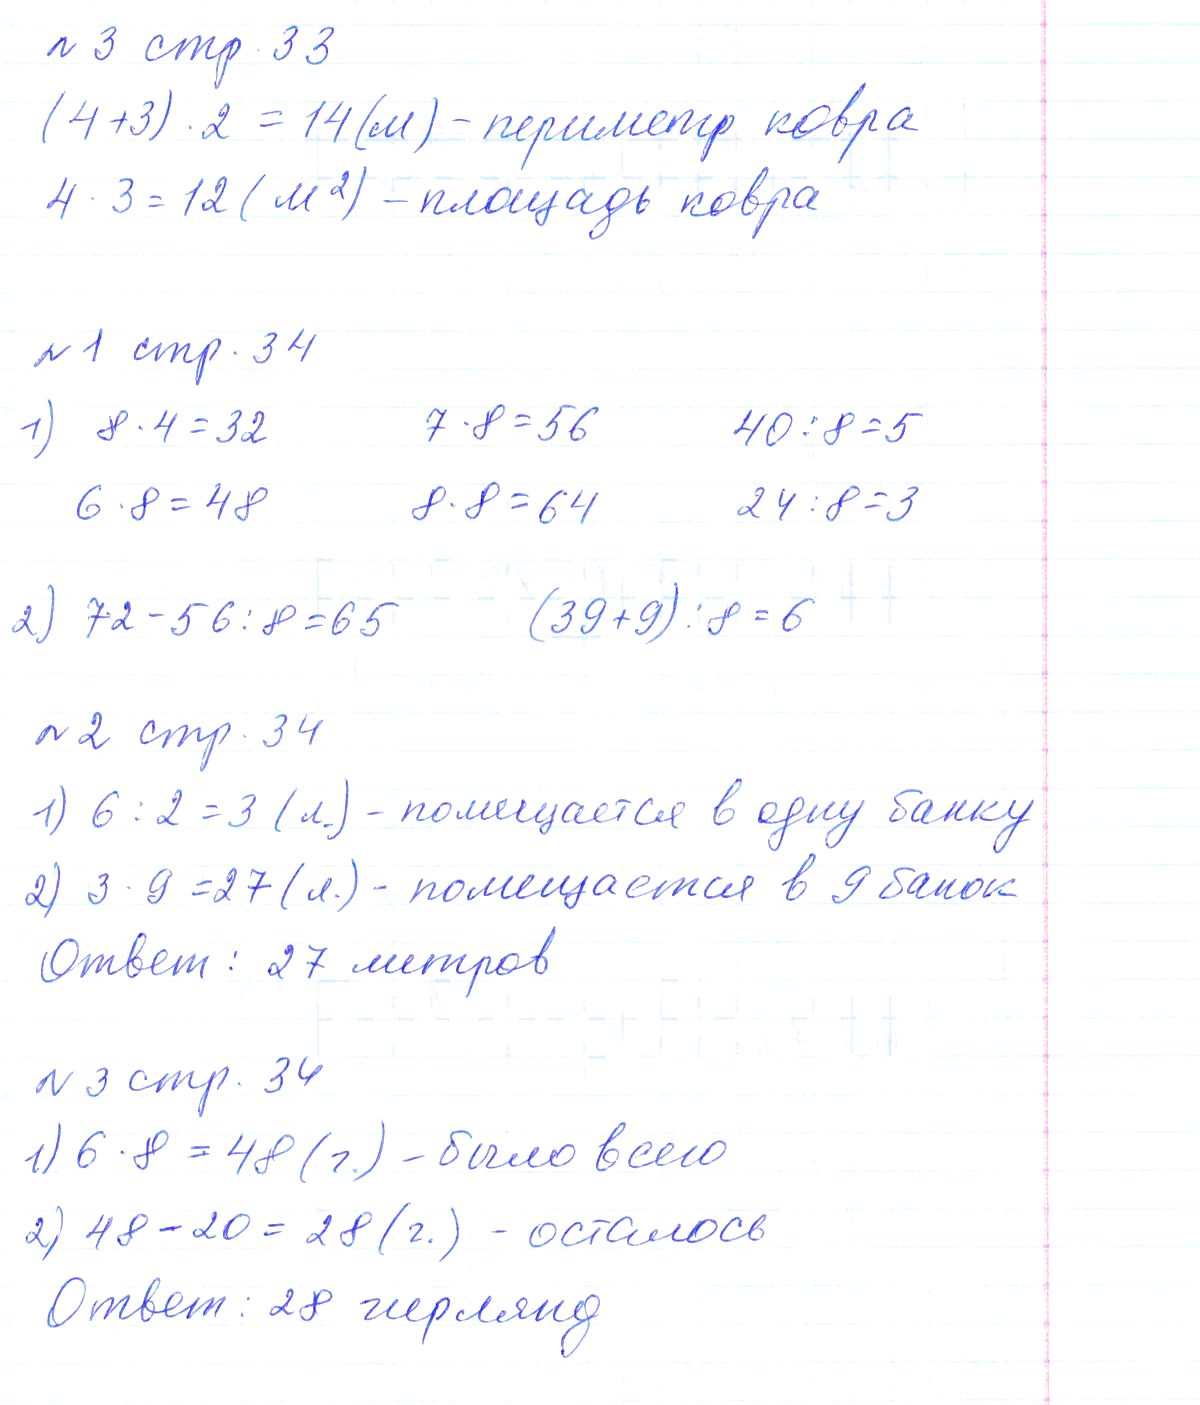 №3 стр. 33
(4+3)·2=14(м) - периметр ковра
4·3=12(м²) - площадь ковра
№1 стр. 34
1) 8·4=32 7·8=56 40:8=5
6·8=48 8·8=64 24:8=3
2) 72-56:8=65 (39+9):8=6
№2 стр. 34
1) 6:2=3(л.) - помещается в одну банку
2) 3·9=27(л.) - помещается в 9 банок
Ответ: 27 метров
№3 стр. 34
1) 6·8=48(г.) - было всего
2) 48-20=28(г.) - осталось
Ответ: 28 гирлянд